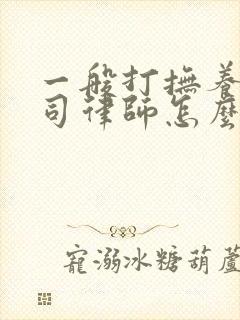 一般打撫養
司律師怎麼
寵溺冰糖葫蘆